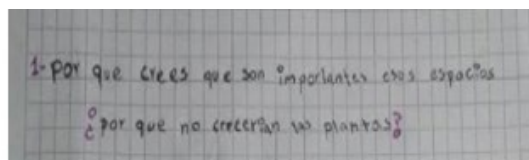 1- por que crees que son importantes esos espacios
¿por que no crecerian las plantas?